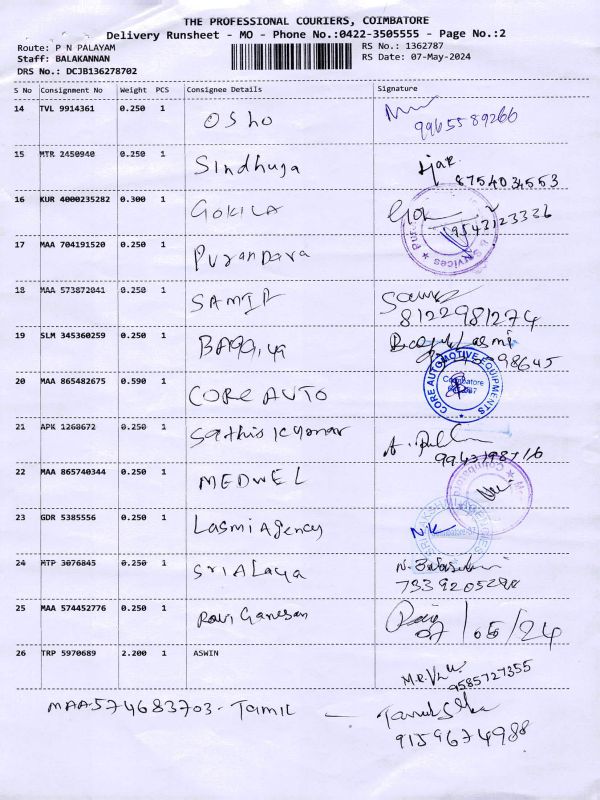 THE PROFESSIONAL COURIERS, COIMBATORE
Delivery Runsheet - MO - Phone No.:0422-3505555 - Page No.:2
Route: P N PALAYAM RS No.: 1362787
Staff: BALAKANNAN RS Date: 07-May-2024
DRS No.: DCJB136278702
S No Consignment No Weight PCS Consignee Details Signature
14 TVL 9914361 0.250 1 Osho
9965589266
15 MTR 2450940 0.250 1 Sindhuja
8754034553
16 KUR 4000235282 0.300 1 GOKILA
9543123326
17 MAA 704191520 0.250 1 Purandara
& Services
18 MAA 573872041 0.250 1 SAMIR
8122981274
19 SLM 345360259 0.250 1
98645
20 MAA 865482675 0.590 1 CORE AUTO CORE AUTOMOTIVE EQUIPMENTS
Coimbatore
21 APK 1268672 0.250 1 Sathis Kumar
22 MAA 865740344 0.250 1 MEDWEL
23 GDR 5385556 0.250 1 Lasmi Agency N.K
24 MTP 3076845 0.250 1 Sri Alaya
25 MAA 574452776 0.250 1 Ravi Ganesan Ravi
07/05/24
26 TRP 5970689 2.200 1 ASWIN
9585727355
MAA574683703 - Tamil —
9159674988